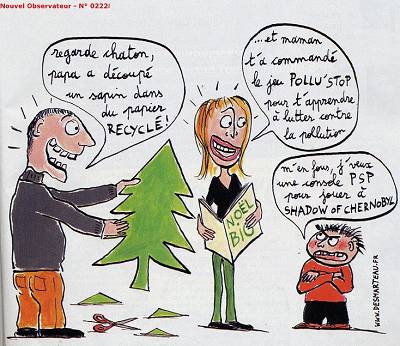 Nouvel Observateur - N° 0222
regarde chaton,
papa a découpé
un sapin dans
du papier
RECYCLÉ!
...et maman
t'a commandé
le jeu POLLU'STOP
pour t'apprendre
à lutter contre
la pollution
m'en fous, j'veux
une console PSP
pour jouer à
SHADOW OF CHERNOBYL
NOËL
BIO
WWW.DESMARTEAU.FR